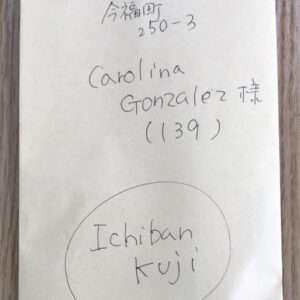 今福町
250-3
Carolina
Gonzalez 様
(139)
Ichiban
Kuji